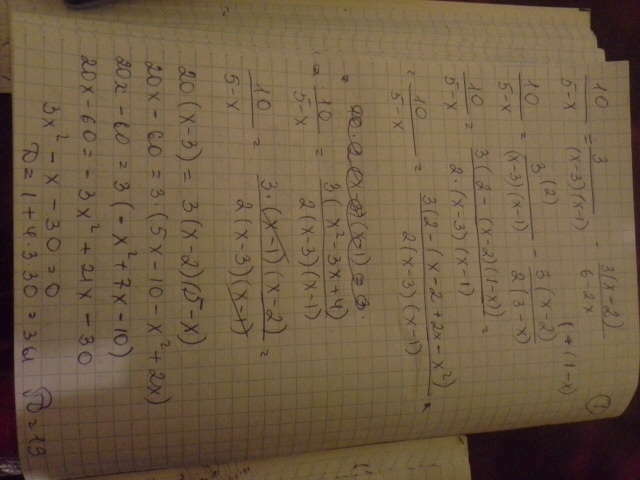 ①
10/(5-x) = 3/((x-3)(x-1)) - 3(x-2)/(6-2x)
10/(5-x) = 3(2)/((x-3)(x-1)) - 3(x-2)/(2(3-x))
10/(5-x) = 3(2-(x-2)(1-x))/(2·(x-3)(x-1)) =
10/(5-x) = 3(2-(x-2+2x-x²))/(2(x-3)(x-1))
= 10/(5-x) = 3(x²-3x+4)/(2(x-3)(x-1))
10/(5-x) = 3·(x-1)(x-2)/(2(x-3)(x-1)) =
20(x-3) = 3(x-2)(5-x)
20x-60 = 3·(5x-10-x²+2x)
20x-60 = 3(-x²+7x-10)
20x-60 = -3x²+21x-30
3x²-x-30=0
D=1+4·330=361 √D=19